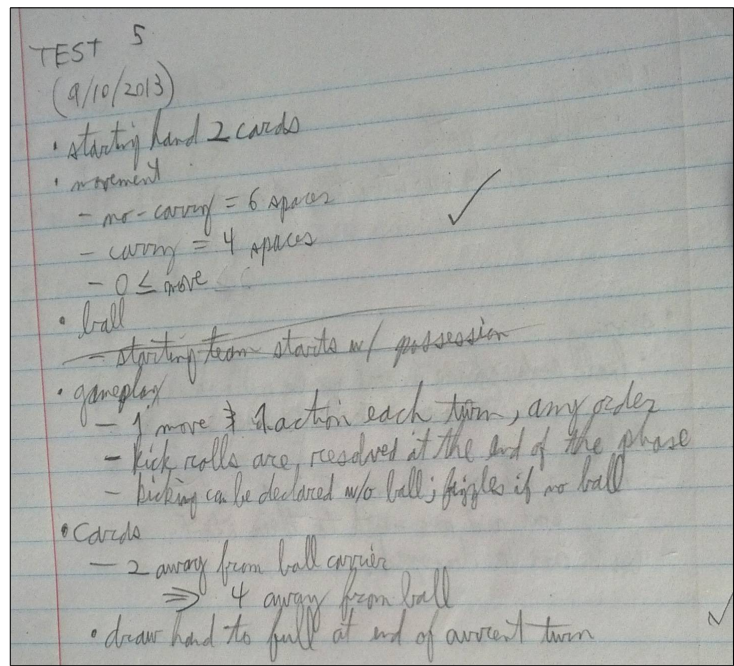 TEST 5
(9/10/2013)
• starting hand 2 cards
• movement
- no-carry = 6 spaces
- carry = 4 spaces
- 0 ≤ move
• ball
- starting team starts w/ possession
• gameplay
- 1 move & 1 action each turn, any order
- kick rolls are resolved at the end of the phase
- kicking can be declared w/o ball; fizzles if no ball
• Cards
- 2 away from ball carrier
⇒ 4 away from ball
• draw hand to full at end of current turn